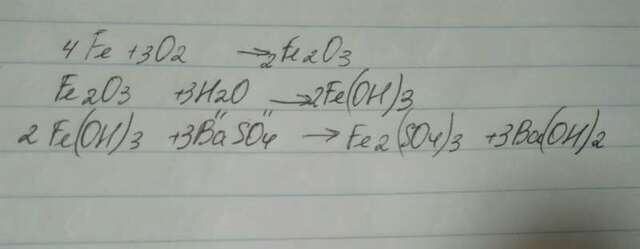 4Fe + 3O2 → 2Fe2O3
Fe2O3 + 3H2O → 2Fe(OH)3
2Fe(OH)3 + 3BaSO4 → Fe2(SO4)3 + 3Ba(OH)2